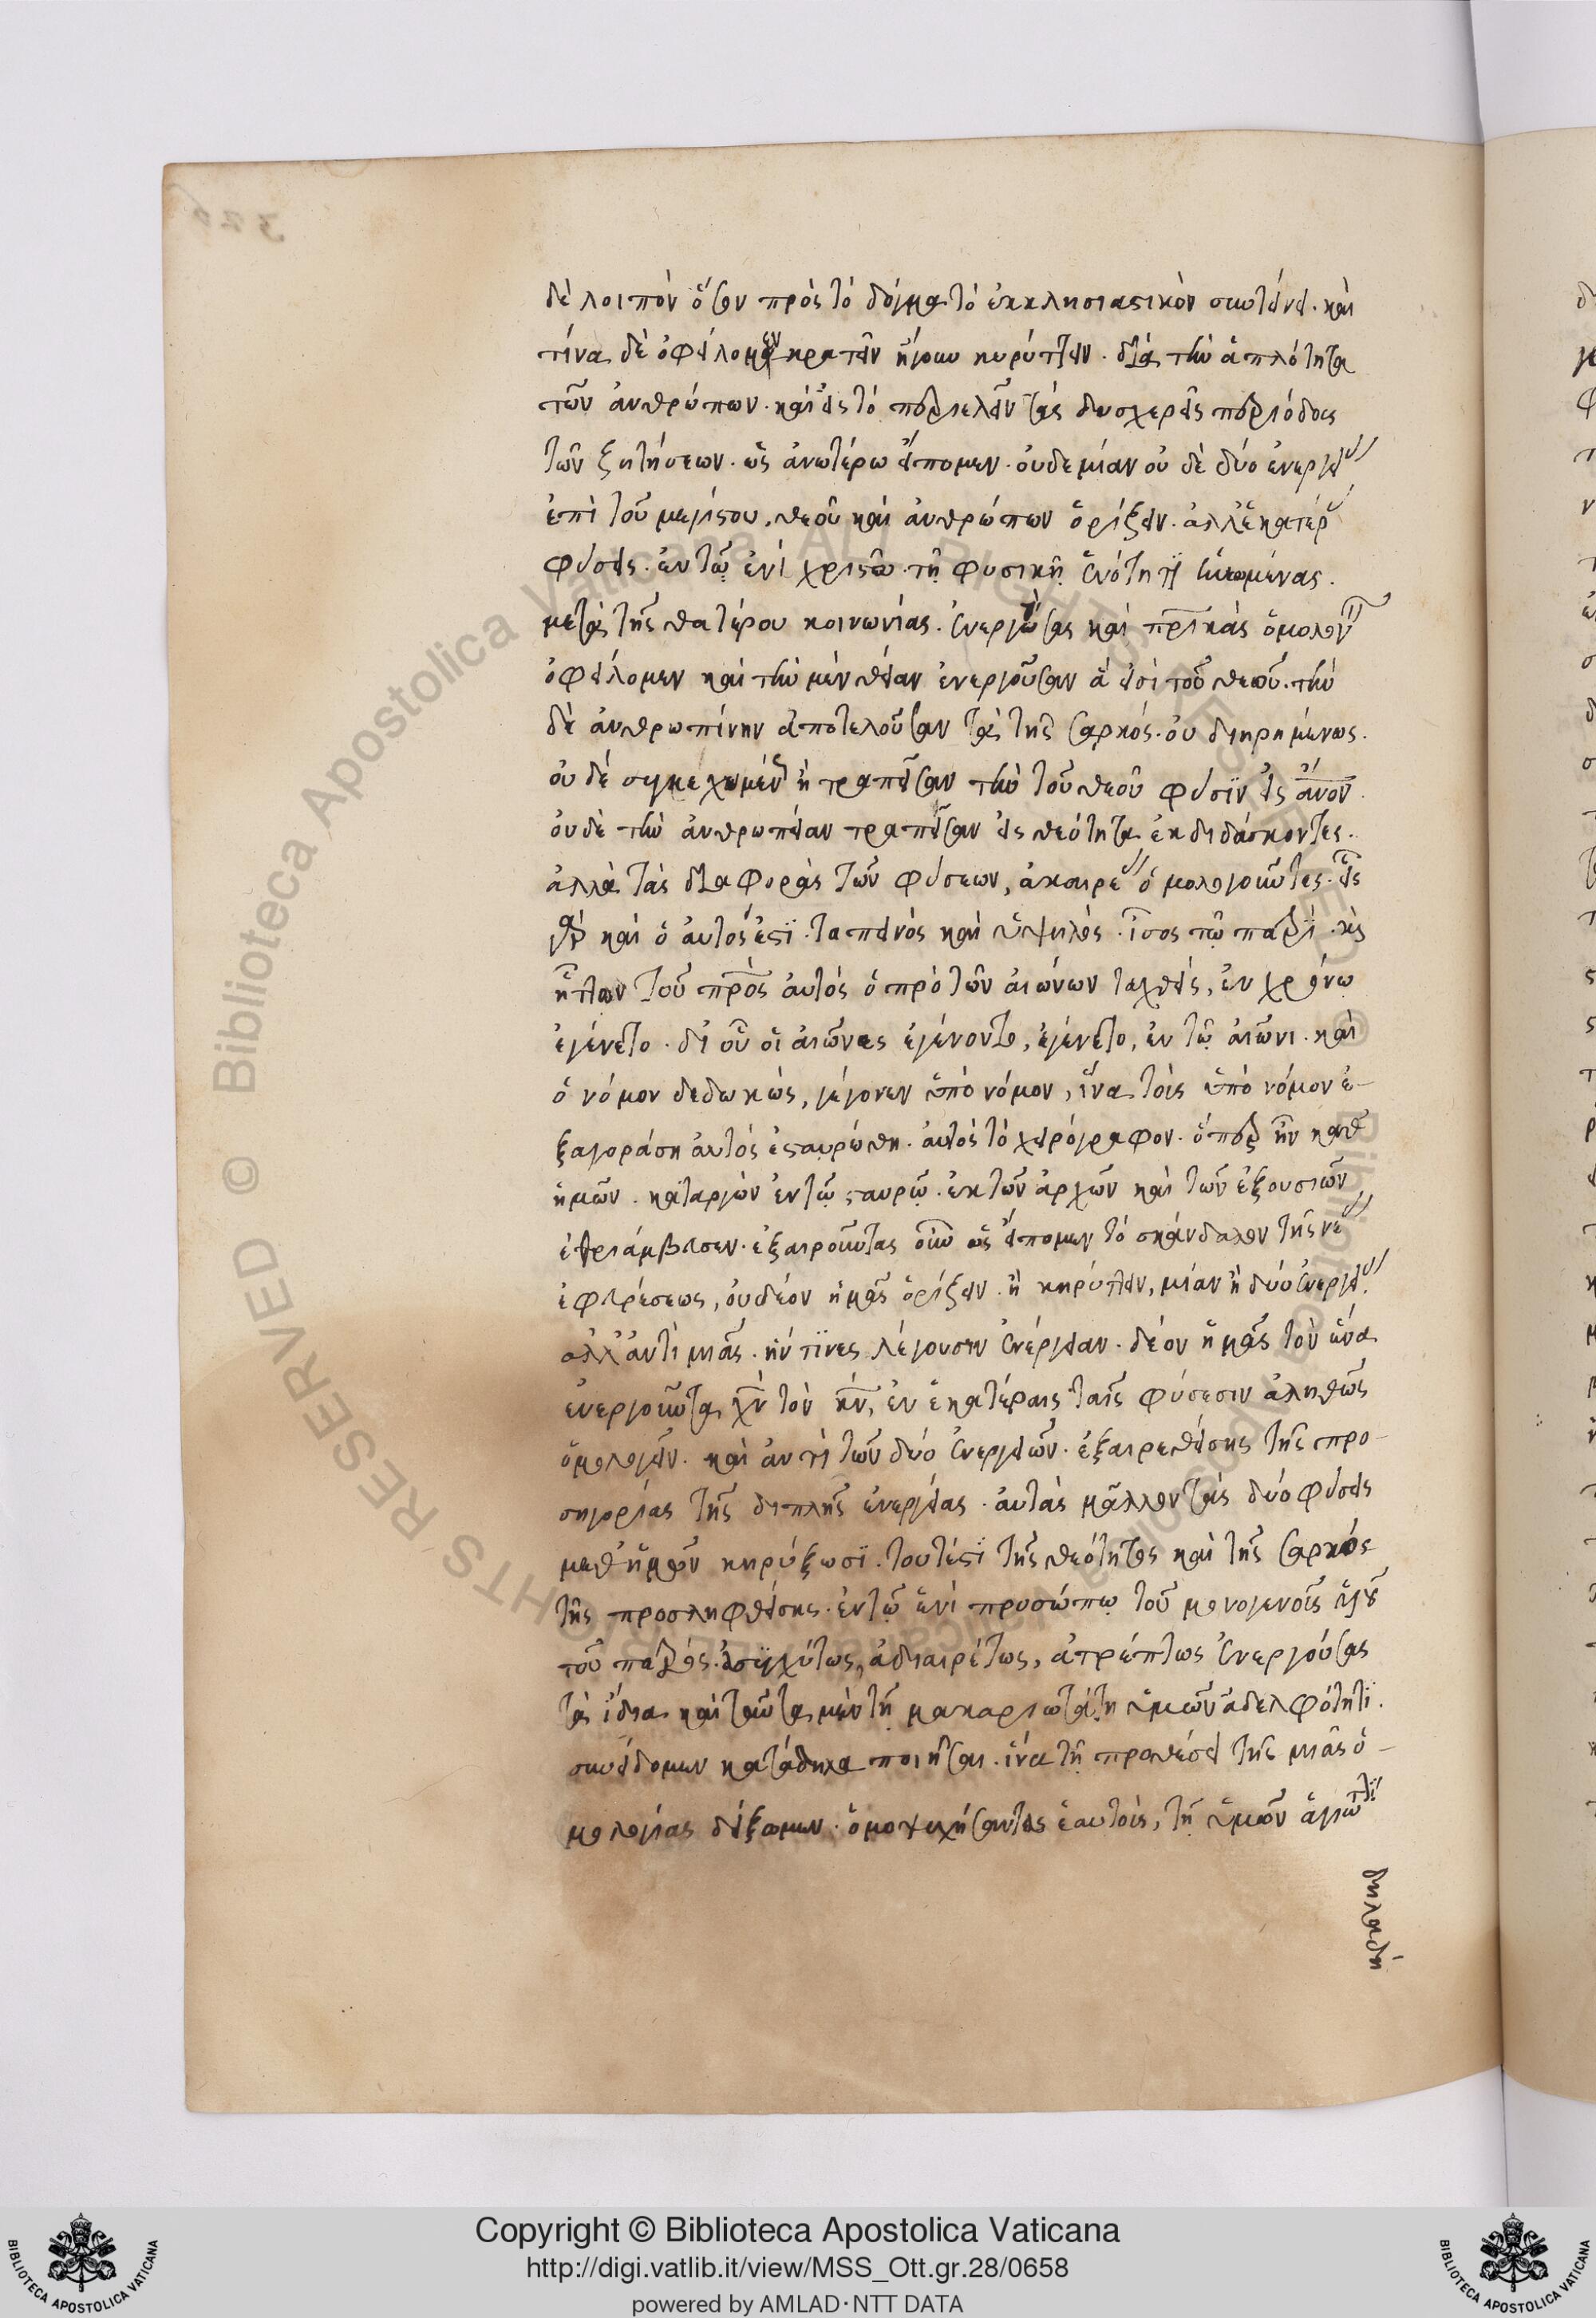 δὲ λοιπὸν ὅσον πρὸς τὸ δόγμα τὸ ἐκκλησιαστικὸν συντείνει. καὶ
τίνα δὲ ὀφείλομεν κρατεῖν ἤγουν κηρύττειν. διὰ τὴν ἁπλότητα
τῶν ἀνθρώπων. καὶ εἰς τὸ περιελεῖν τὰς δυσχερεῖς περιόδους
τῶν ζητήσεων. ὡς ἀνωτέρω εἴπομεν. οὐδεμίαν οὐ δὲ δύο ἐνεργεί
ἐπὶ τοῦ μεσίτου θεοῦ καὶ ἀνθρώπων ὁρίζειν. ἀλλ' ἑκατέρ
φύσεις. ἐν τῷ ἑνὶ χριστῶ. τῇ φυσικῇ ἑνότητι ἡνωμένας.
μετὰ τῆς θατέρου κοινωνίας. ἐνεργούσας καὶ πρακτικὰς ὁμολογ
ὀφείλομεν καὶ τὴν μὲν θείαν ἐνεργοῦσαν ἅ εἰσὶ τοῦ θεοῦ. τὴν
δὲ ἀνθρωπίνην ἀποτελοῦσαν τὰ τῆς σαρκός. οὐ διηρημένως.
οὐ δὲ συγκεχυμέν ἢ τραπεῖσαν τὴν τοῦ θεοῦ φύσιν εἰς ἄνον.
οὐδὲ τὴν ἀνθρωπείαν τραπεῖσαν εἰς θεότητα ἐκδιδάσκοντες.
ἀλλὰ τὰς διαφορὰς τῶν φύσεων, ἀκαιρε ὁμολογοῦντες. εἷς
γὰρ καὶ ὁ αὐτός ἐστι. ταπεινὸς καὶ ὑψηλὸς. ἴσος τῷ πατρὶ. καὶ
ἥττων τοῦ πρς αὐτὸς ὁ πρὸ τῶν αἰώνων ταχθεὶς, ἐν χρόνω
ἐγένετο. δι οὗ οἱ αἰῶνες ἐγένοντο, ἐγένετο, ἐν τῷ αἰῶνι. καὶ
ὁ νόμον δεδωκὼς, γέγονεν ὑπὸ νόμον, ἵνα τοὺς ὑπὸ νόμον ἐ-
ξαγοράση αὐτὸς ἐσταυρώθη. αὐτὸς τὸ χειρόγραφον. ὅπερ ἦν καθ
ἡμῶν. καταργῶν ἐν τῷ σταυρῷ. ἐκ τῶν ἀρχῶν καὶ τῶν ἐξουσιῶν
ἐθριάμβευσεν. ἐξαιροῦντας οὖν ὡς εἴπομεν τὸ σκάνδαλον τῆς νε
ἐφευρέσεως, οὐ δέον ἡμᾶς ὁρίζειν. ἢ κηρύττειν, μίαν ἢ δύο ἐνεργεί.
ἀλλ' ἀντὶ μιᾶς. ἥν τινες λέγουσιν ἐνέργειαν. δέον ἡμᾶς τὸν ἕνα
ἐνεργοῦντα χν τὸν κν, ἐν ἑκατέραις ταῖς φύσεσιν ἀληθῶς
ὁμολογεῖν. καὶ ἀντὶ τῶν δύο ἐνεργειῶν. ἐξαιρεθείσης τῆς προ-
σηγορίας τῆς διπλῆς ἐνεργείας. αὐτὰς μᾶλλον τὰς δύο φύσεις
μεθ' ἡμῶν κηρύξωσι. τουτέστι τῆς θεότητος καὶ τῆς σαρκὸς
τῆς προσληφθείσης. ἐν τῷ ἑνὶ προσώπῳ τοῦ μονογενοῦς υἱοῦ
τοῦ πατρὸς. ἀσυγχύτως, ἀδιαιρέτως, ἀτρέπτως ἐνεργούσας
τὰ ἴδια καὶ ταῦτα μὲν τῇ μακαριωτάτη ὑμῶν ἀδελφότητι.
συνείδομεν κατάδηλα ποιῆσαι. ἵνα τῇ προθέσει τῆς μιᾶς ὁ-
μολογίας δείξωμεν. ὁμοψυχήσαντες ἑαυτοῖς, τῇ ὑμῶν ἁγιώτητι
δηλαδὴ
Copyright © Biblioteca Apostolica Vaticana
http://digi.vatlib.it/view/MSS_Ott.gr.28/0658
powered by AMLAD·NTT DATA